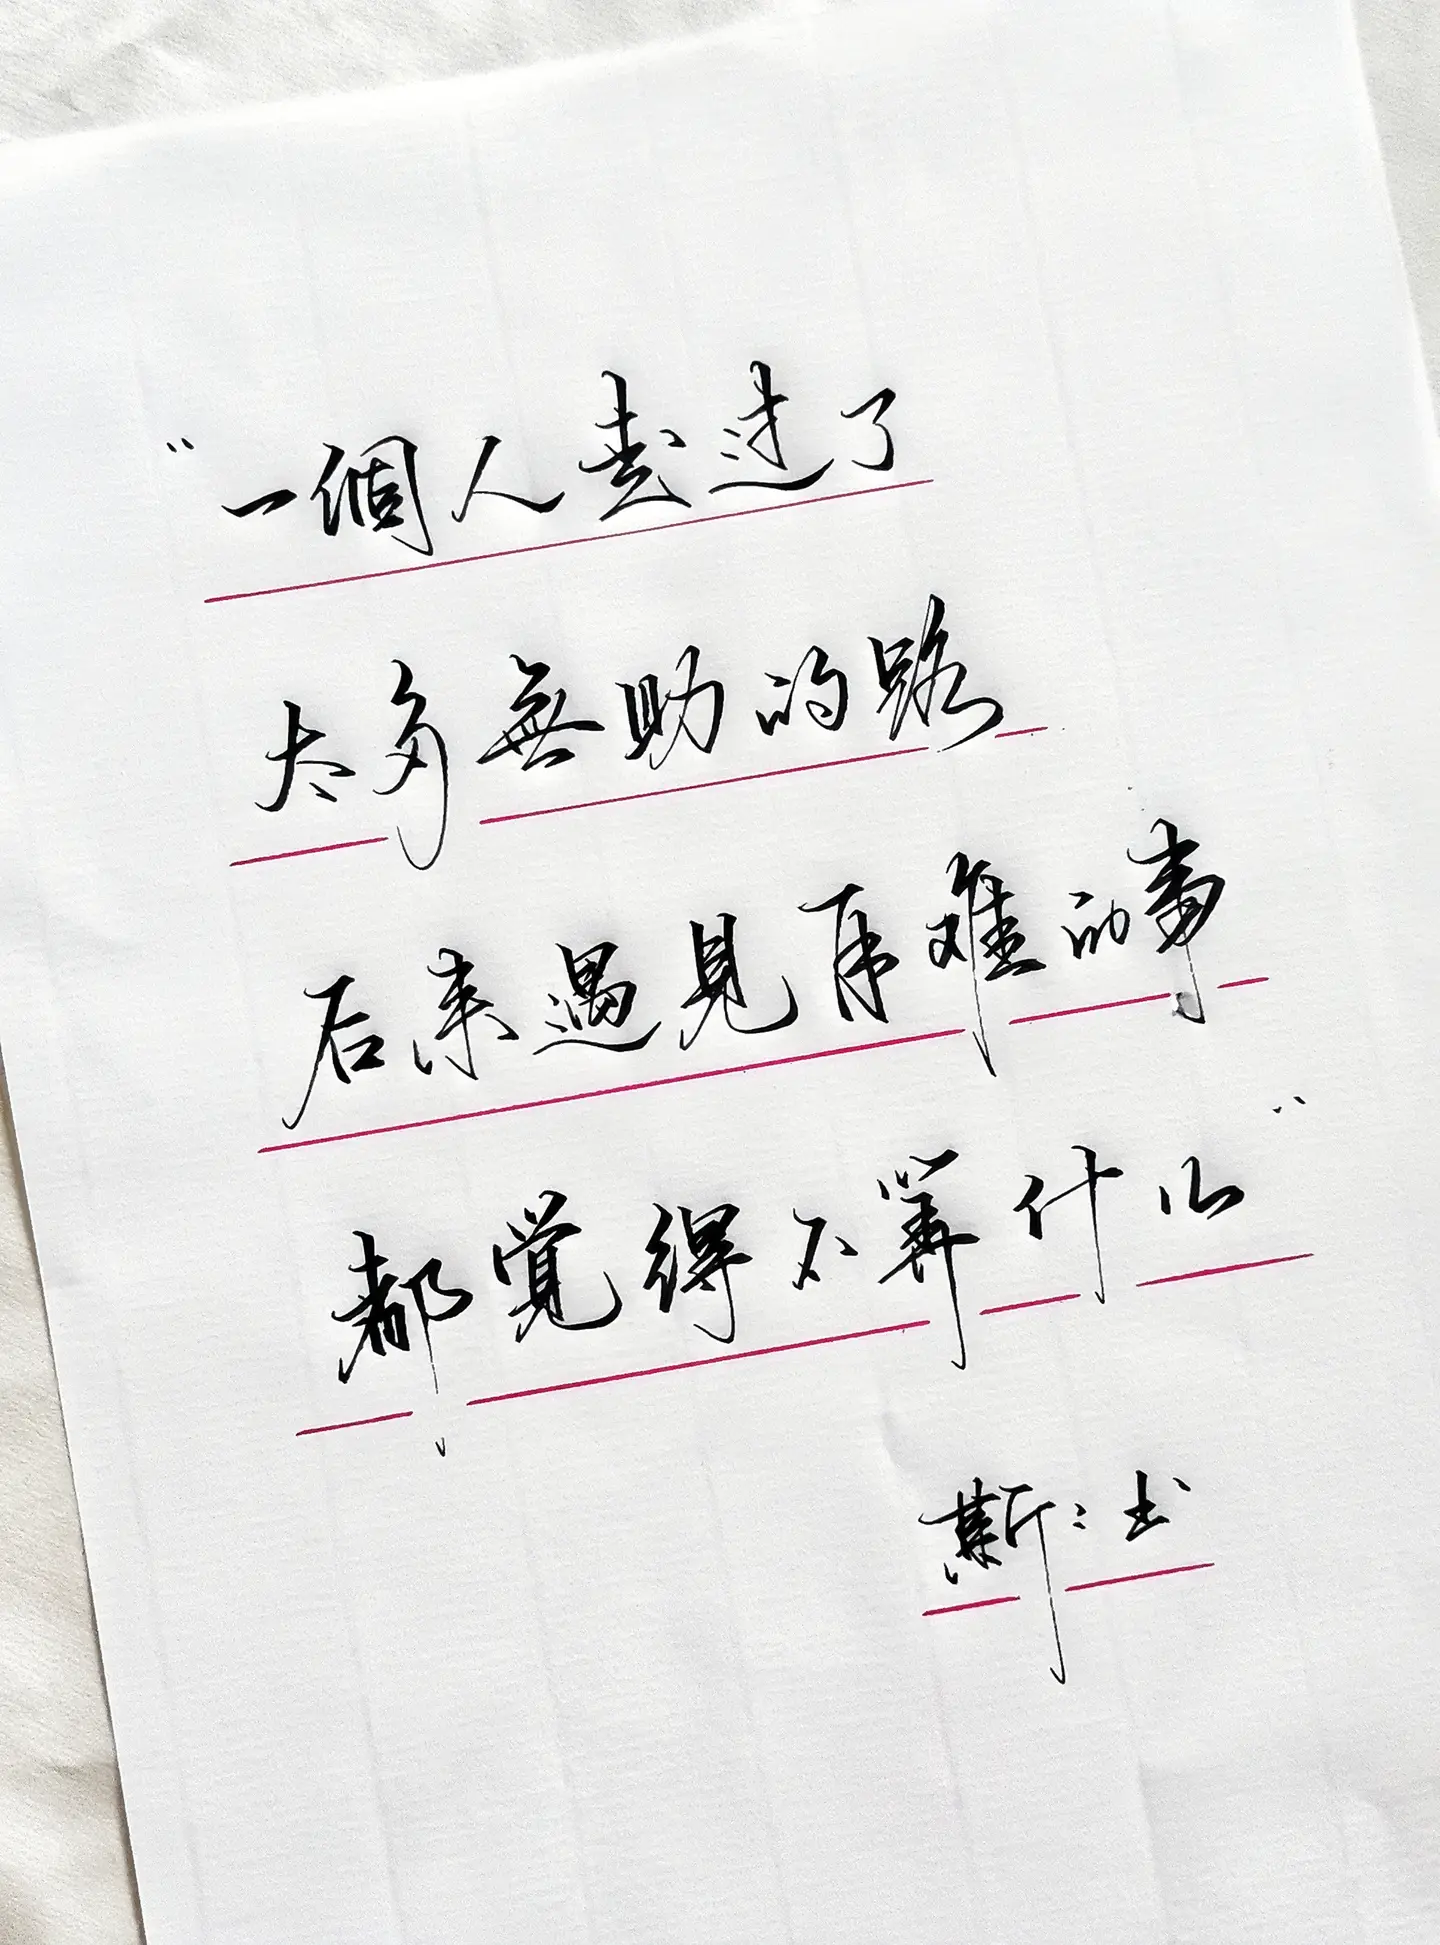 “一個人走过了
太多無助的路
后来遇見再難的事
都覺得不算什么”
斯：书